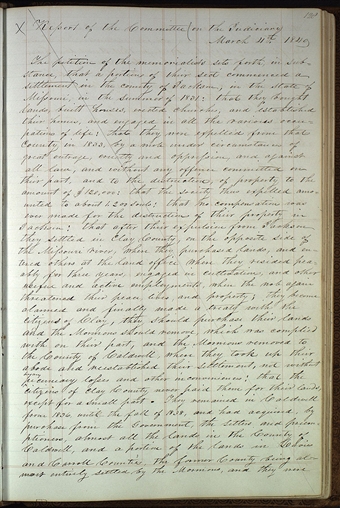 Report of the Committee on the Judiciary
March 4th 1840
The petition of the memorialists sets forth in sub-
stance, that a portion of their sect commenced a
settlement in the county of Jackson, in the State of
Missouri, in the summer of 1831: that they bought
lands, built houses, erected churches, and established
their homes, and engaged in all the various occu-
pations of life: that they were expelled from that
County in 1833, by a mob under circumstances of
great outrage, cruelty and oppression, and against
all law, and without any offence committed on
their part, and to the destruction of property to the
amount of $120,000: that the society thus expelled amo-
unted to about 1200 souls: that no compensation was
ever made for the destruction of their property in
Jackson: that after their expulsion from Jackson
they settled in Clay County, on the opposite side of
the Missouri river where they purchased lands, and en-
tered others at the land office where they resided pea-
ably for three years, engaged in cultivation, and other
useful and active employments, when the mob again
threatened their peace, lives and property; they became
alarmed and finally made a treaty with the
citizens of Clay, that they should purchase their lands
and the Mormons should remove which was complied
with on their part, and the Mormons removed to
the County of Caldwell where they took up their
abode and reestablished their settlement, not without
pecuniary losses and other inconveniences: that the
citizens of Clay County never paid them for their lands
except for a small part. They remained in Caldwell
from 1836 until the fall of 1838, and had acquired, by
purchase from the Government, the settlers and preem-
ptioners, almost all the lands in the County of
Caldwell, and a portion of the lands in Daviess
and Carroll Counties, the former County being al-
most entirely settled by the Mormons, and they were